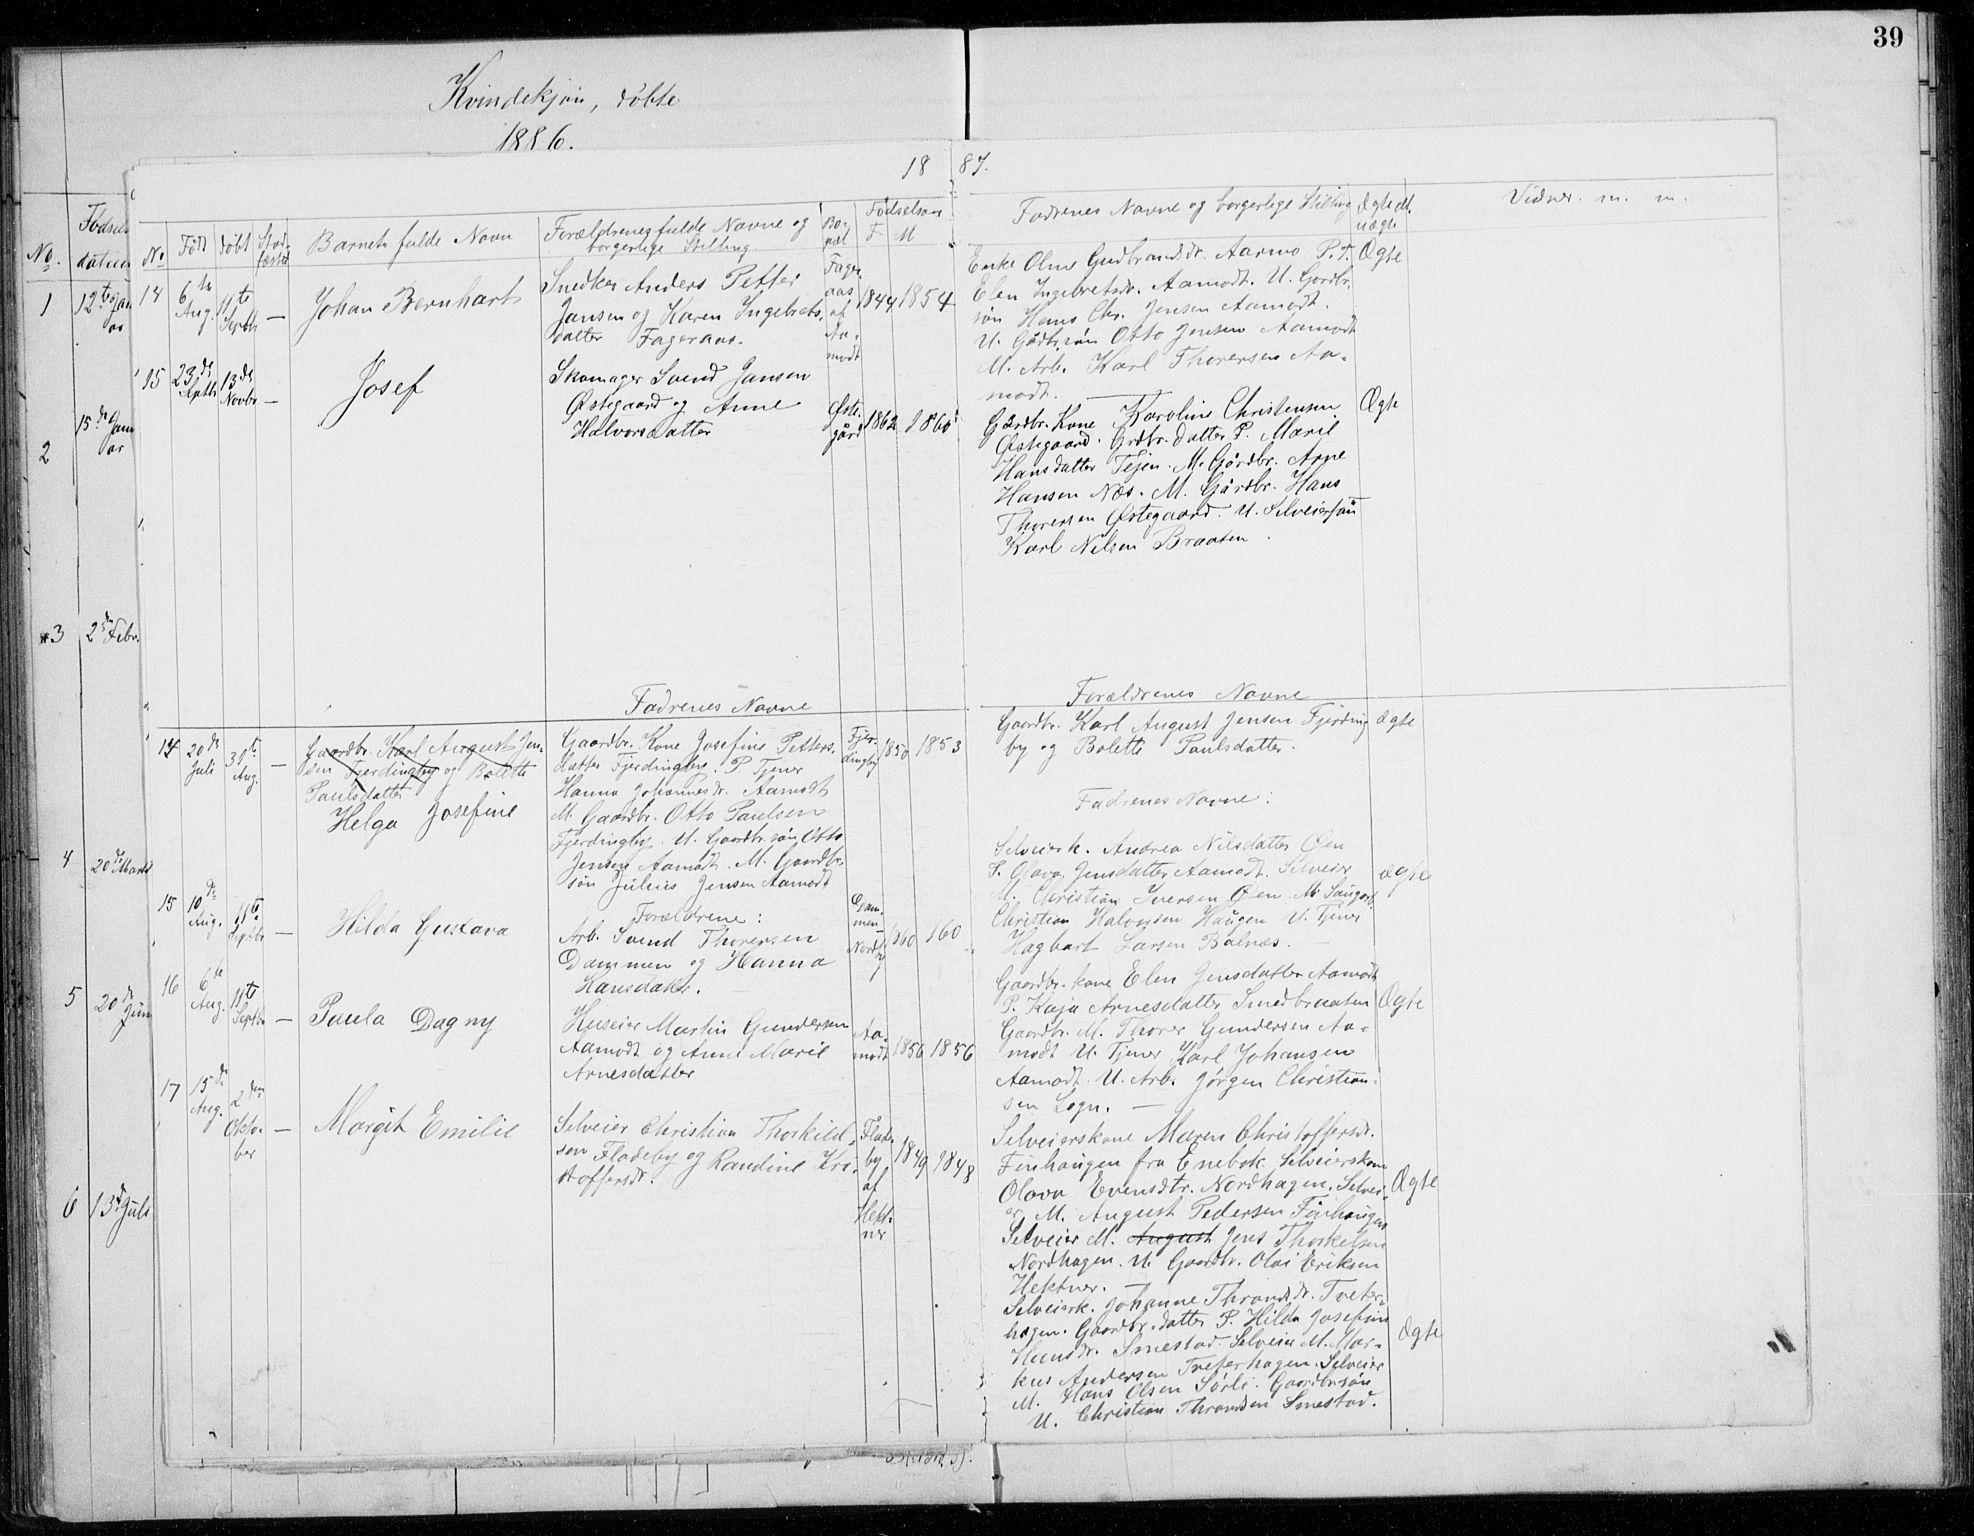 39
Kvindekjøn, døbte
1886.
No. Fødsels
datum
1 12te Jan
ar
2 15de Janu
ar
3 2den Febr.
4 20de Marts
5 20de Juni
6 13de Juli
18 87.
No Født døbt Barnets fulde Navn Forældrenes fulde Navne og
borgerlige Stilling
Bo-
pæl
Fødselsaar
F M
Fadrenes Navne og borgerlige Stilling Ægte el.
uægte
Vidner. m. m.
14 6te
Aug. 11te
Septb. —
Johan Bernhart
Snedker Anders Petter
Jansen og Karen Ingebrets-
datter Fageraas.
Fager-
aas
af
Aa-
modt
1844 1854
Enke Oline Gudbrandsdr. Aarmo P.T.
Elen Ingebretsdr. Aamodt. U. Gordbr.
søn Hans Chr. Jensen Aamodt.
U. Gådbr.søn Otto Jensen Aamodt
M. Arb. Karl Thorersen Aa-
modt. —
Ægte
15 23de
Septb. 13de
Novbr —
Josef
Skomager Svend Jansen
Østegaard og Anne
Halvorsdatter
Øste-
gård
1862 1860
Gårdbr. Kone Karoline Christensen
Østegaard. Grdbr. datter P. Marie
Hansdatter Tejen. M. Gårdbr. Arne
Hansen Næs. M. Gårdbr. Hans
Thorersen Østegaard. U. Selveiersøn
Karl Nilsen Braaten.
Ægte
Fadrenes Navne
Forældrenes Navne
14 20de
Juli 30te
Aug. —
Gaardbr. Karl August Jen-
sen Fjerdingby og Bolette
Paulsdatter
Helga Josefine
Gaardbr. Kone Josefine Petters-
datter Fjerdingby. P. Tjener
Hanna Johannesdr. Aamodt
M. Gaardbr. Otto Paulsen
Fjerdingby. U. Gaardbr.søn Otto
Jensen Aamodt. M. Gaardbr.
søn Julius Jensen Aamodt
Fjer-
dingby
1850 1853
Gaardbr. Karl August Jensen Fjerding
by og Bolette Paulsdatter.
Ægte
Fadrenes Navne:
15 10de
Aug. 11te
Septbr —
Hilda Gustava
Forældrene:
Arb. Svend Thorersen
Dammen og Hanna
Hansdatter. —
Dam-
men
Nordby
1860 1860
Selveierk. Andrea Nilsdatter Øen
P. Olava Jensdatter Aamodt. Selveier
M. Christian Iversen Øen. M. Saugarb.
Christian Halvorsen Haugen U. Tjener
Hagbart Larsen Bolnæs. —
Ægte
16 6te
Aug. 11te
Septbr —
Paula Dagny
Huseier Martin Gundersen
Aamodt og Anne Marie
Arnesdatter
Aa-
modt
1856 1856
Gaardbr. kone Elen Jensdatter Aamodt
P. Kaja Arnesdatter Smedbraaten
Gaardbr. M. Thorer Gundersen Aa-
modt U. Tjener Karl Johansen
Aamodt. U. Arb. Jørgen Christian-
sen Sogn. —
Ægte
17 15de
Aug. 2den
Okto-
ber —
Margit Emilie
Selveier Christian Thorkild-
sen Fladeby og Randine Kri-
stoffersdr.
Flade-
by
af
Hekt-
ner
1849 1848
Selveierskone Maren Christoffersdr.
Finhaugen fra Enebak. Selveierskone
Olava Evensdtr. Nordhagen. Selvei-
er M. August Pedersen Finhaugen
Selveier M. August Jens Thorkelsen
Nordhagen. U. Gaardbr. Olai Eriksen
Hektner. —
Ægte
Selveierk. Johanne Thronsdr. Tveter-
hagen. Gaardbr. datter P. Hilda Josefine
Hansdr. Smestad. Selveier M. Mar-
kus Andersen Tveterhagen. Selveier
M. Hans Olsen Sørli. Gaardbrsøn
U. Christian Thronsen Smestad.
Ægte